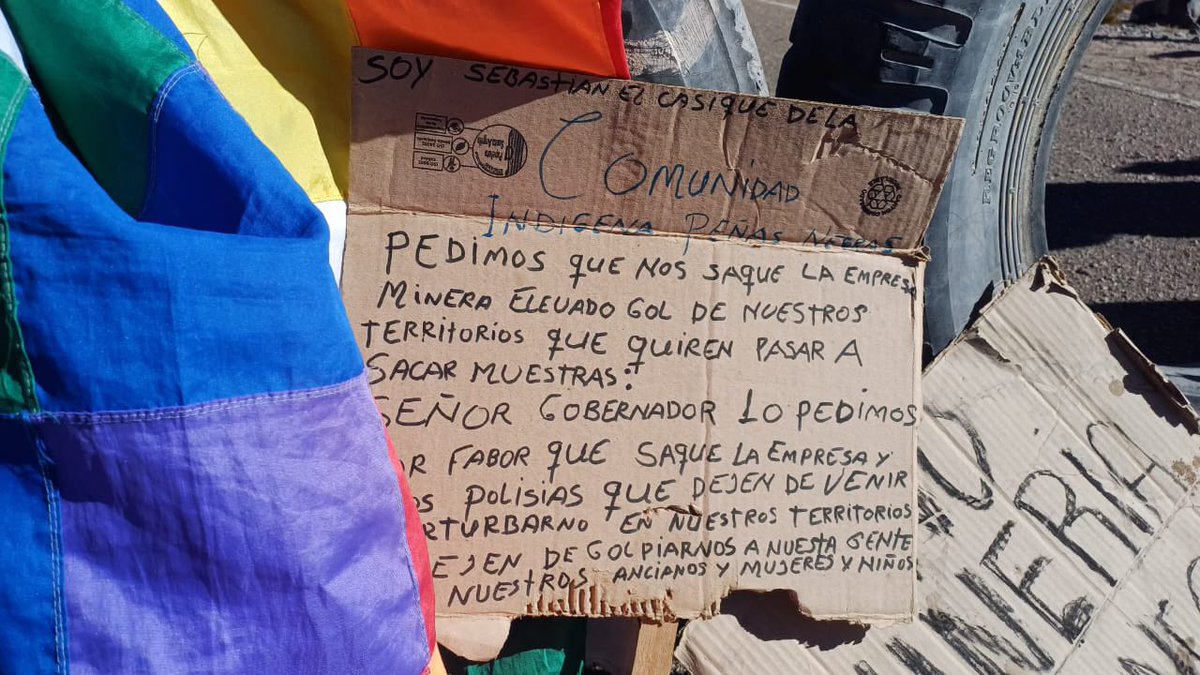 SOY SEBASTIAN EL CASIQUE DE LA
COMUNIDAD
INDIGENA PEÑAS NEGRAS
PEDIMOS QUE NOS SAQUE LA EMPRESA
MINERA ELEUADO GOL DE NUESTROS
TERRITORIOS QUE QUIREN PASAR A
SACAR MUESTRAS:
SEÑOR GOBERNADOR LO PEDIMOS
OR FABOR QUE SAQUE LA EMPRESA Y
OS POLISIAS QUE DEJEN DE VENIR
RTURBARNO EN NUESTROS TERRITORIOS
EJEN DE GOLPIARNOS A NUESTA GENTE
NUESTROS ANCIANOS Y MUJERES Y NIÑOS
NO
INERIA